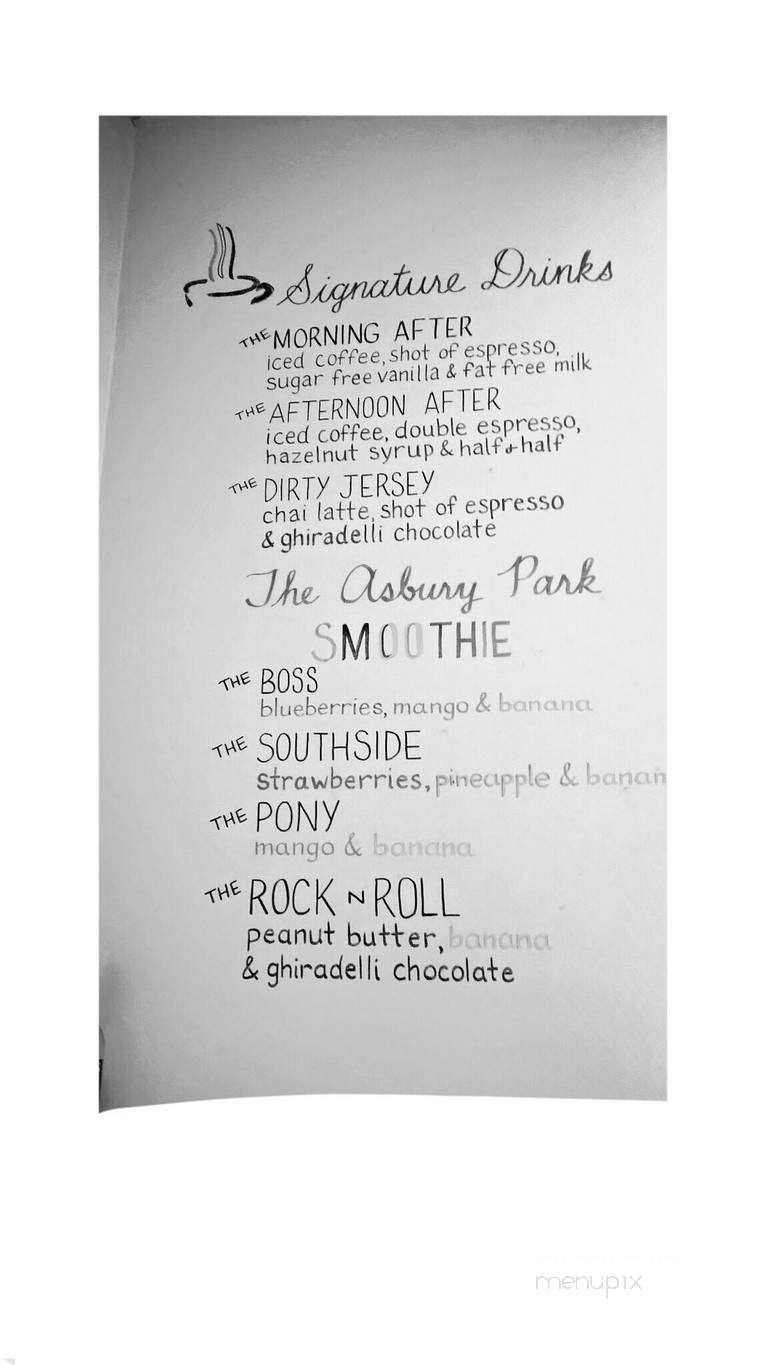 Signature Drinks
THE MORNING AFTER
iced coffee, shot of espresso,
sugar free vanilla & fat free milk
THE AFTERNOON AFTER
iced coffee, double espresso,
hazelnut syrup & half & half
THE DIRTY JERSEY
chai latte, shot of espresso
& ghiradelli chocolate
The Asbury Park
SMOOTHIE
THE BOSS
blueberries, mango & banana
THE SOUTHSIDE
strawberries, pineapple & banan
THE PONY
mango & banana
THE ROCK N ROLL
peanut butter, banana
& ghiradelli chocolate
menupix